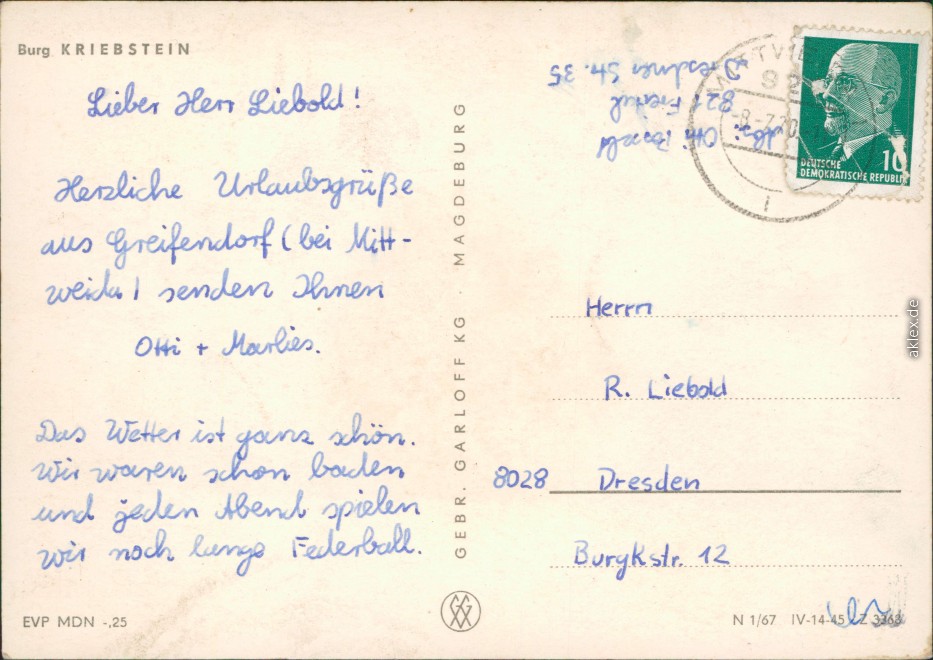 Burg KRIEBSTEIN
Lieber Herr Liebold!
Herzliche Urlaubsgrüße
aus Greifendorf (bei Mitt-
weida) senden Ihnen
Otti + Marlies.
Das Wetter ist ganz schön.
Wir waren schon baden
und jeden Abend spielen
wir noch lange Federball.
EVP MDN -,25
GEBR. GARLOFF KG · MAGDEBURG
Abs.: Otti
821 Freital
Dresdner Str. 35
-8.-7.70
DEUTSCHE
DEMOKRATISCHE REPUBLIK
10
Herrn
R. Liebold
8028 Dresden
Burgkstr. 12
N 1/67 IV-14-45 Z 3368
aklex.de